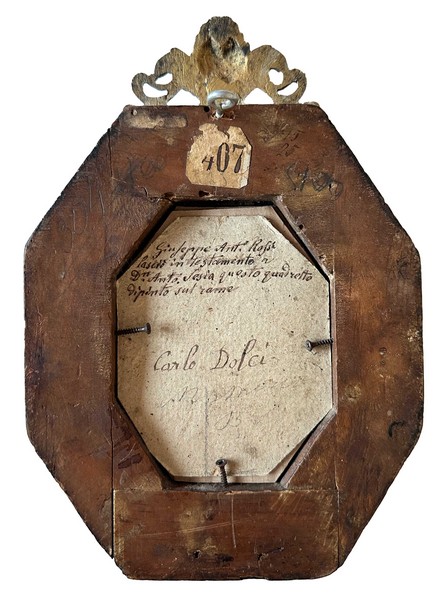 407
Giuseppe Ant.º Rossi
lasciò in testamento a
Dn Antº. Sesia questo quadretto
dipinto sul rame
Carlo Dolci